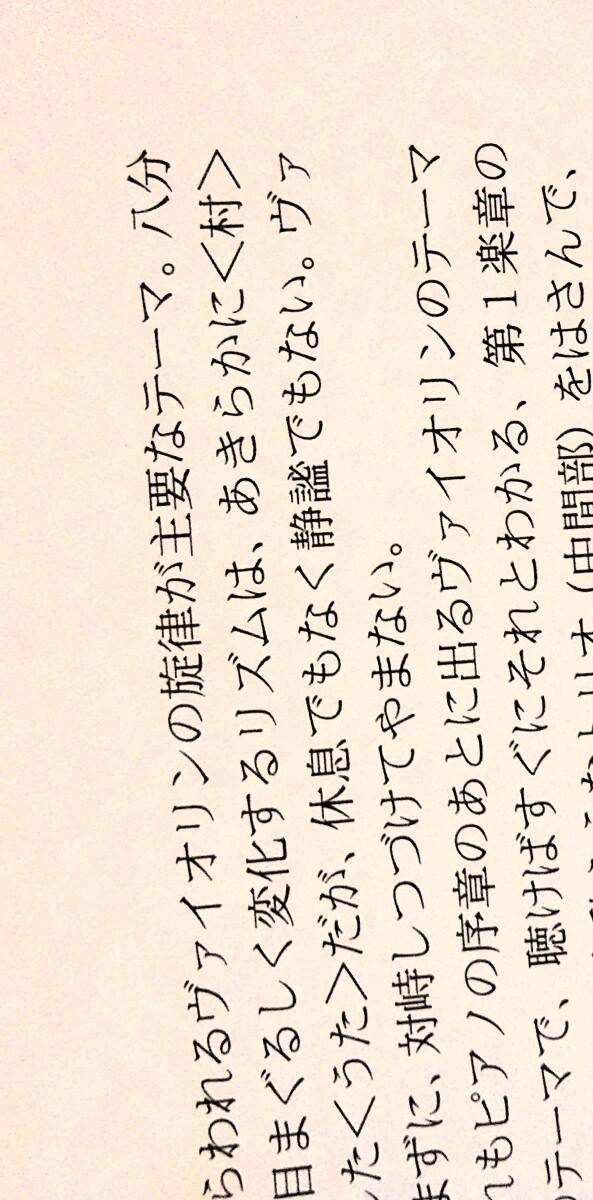 らわれるヴァイオリンの旋律が主要なテーマ。八分
目まぐるしく変化するリズムは、あきらかに<村>
たくうた>だが、休息でもなく静謐でもない。ヴァ
まずに、対峙しつづけてやまない。
れもピアノの序章のあとに出るヴァイオリンのテーマ
のテーマで、聴けばすぐにそれとわかる、第1楽章の
なトリオ(中間部)をはさんで、